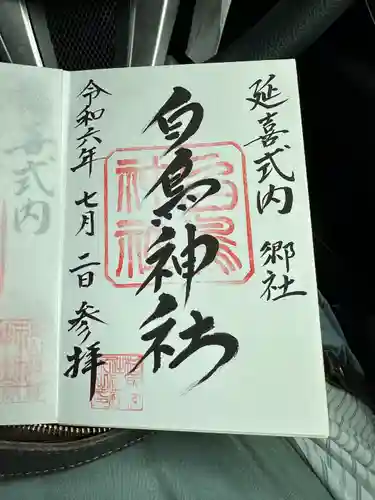 延喜式内 郷社
白鳥神社
令和六年 七月 二日 参拝
白鳥神社